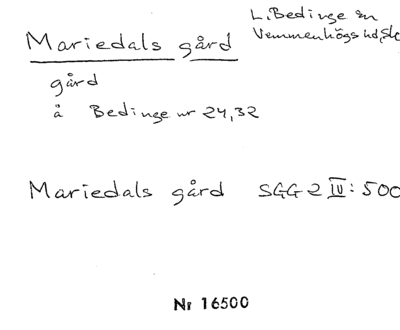 Mariedals gård
L. Bedinge sn
Vemmenhögs hd, Sk
gård
å Bedinge nr 24,32
Mariedals gård SGG 2 IV: 500
Nr 16500